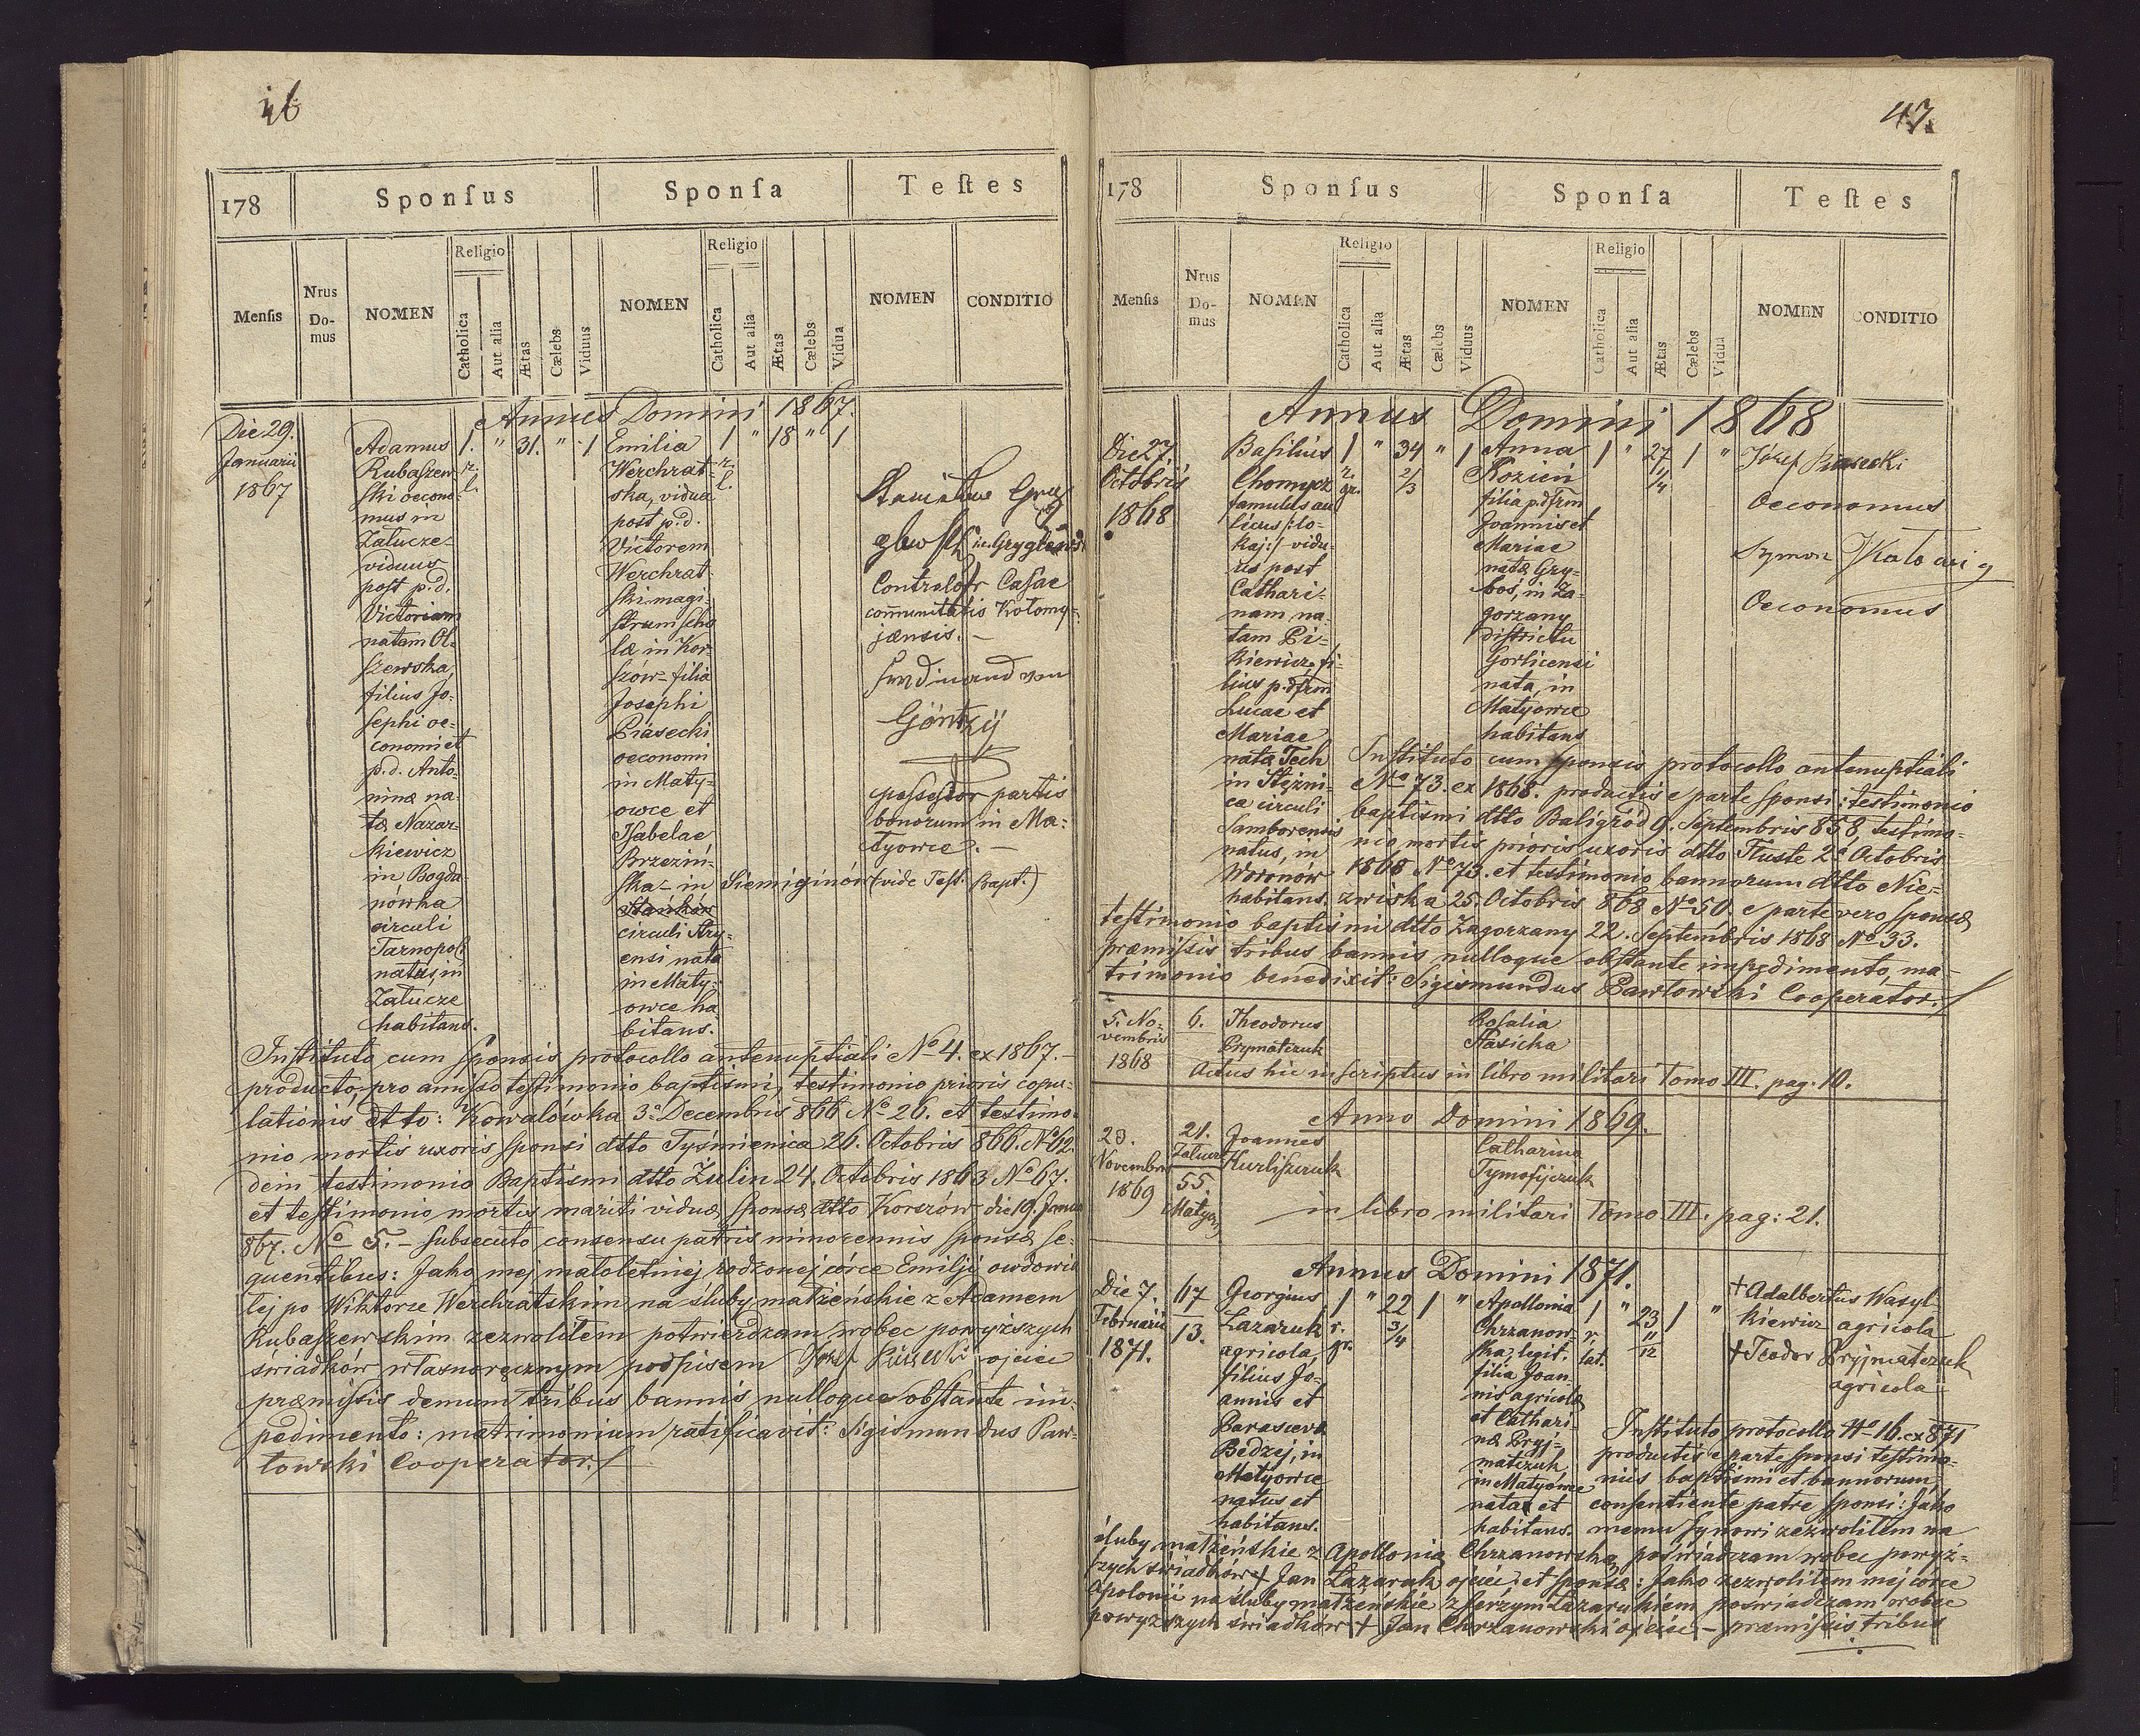 46
178
Sponſus
Sponſa
Teſtes
Menſis
Nrus
Do-
mus
NOMEN
Religio
Catholica
Aut alia
Ætas
Cælebs
Viduus
NOMEN
Religio
Catholica
Aut alia
Ætas
Cælebs
Vidua
NOMEN
CONDITIO
Annus Domini 1867.
Die 29.
Januarii
1867
Adamus
Rubaszew-
ski oecono-
mus in
Załucze-
viduus
post p.d.
Victoriam
natam Ol-
szewska,
filius Jo-
sephi oe-
conomi et
p.d. Anto-
ninæ na-
tæ Nazar-
kiewicz
in Bogda-
nówka
circuli
Tarnopol
natus, in
Załucze
habitans.
1. " 31. " 1
r.
l.
Emilia
Werchrat-
ska, vidua
post p.d.
Victorem
Werchrat-
ski magi-
strum scho
læ in Kor-
szów-filia
Josephi
Piasecki
oeconomi
in Maty-
owce et
Isabelae
Brzeziń-
ska- in Siemiginów (vide Test. Bapt.)
Stańków
circuli Stry-
ensi nata
in Maty-
owce ha
bitans.
1 " 18 " 1
r.
l.
Contralor Casae
communitatis Kołomy-
jænsis.-
Ferdinand von
Görtzij
possessor partis
bonorum in Ma-
tyowce.-
Instituto cum sponsis protocollo antenuptiali No 4. ex 1867.-
producto, pro amisso testimonio baptismi, testimonio prioris copu-
lationis dtto: Kowalówka 3a Decembris 866 No 26. et testimo-
nio mortis uxoris sponsi dtto Tyśmienica 26. Octobris 866. No 62.
dein testimonio Baptismi dtto Żulin 24. Octobris 1863 No 67.
et testimonio mortis mariti viduæ sponsæ dtto Korszów die 19. Janua
867. No 5.- subsecuto consensu patris minorennis sponsæ se-
quentibus: Jako mej małoletniej rodzonej córce Emilji owdowia
łej po Wiktorze Werchratskim na śluby małżeńskie z Adamem
Rubaszewskim zezwoliłem potwierdzam wobec powyższych
świadków własnoręcznym podpisem Józef Piasecki ojciec
præmissis demum tribus bannis nulloque obstante im-
pedimento: matrimonium ratificavit: Sigismundus Paw-
łowski Cooperator./
47.
178
Sponſus
Sponſa
Teſtes
Menſis
Nrus
Do-
mus
NOMEN
Religio
Catholica
Aut alia
Ætas
Cælebs
Viduus
NOMEN
Religio
Catholica
Aut alia
Ætas
Cælebs
Vidua
NOMEN
CONDITIO
Annus Domini 1868
Die 27.
Octobris
1868
Basilius
Chomycz
famulus au
licus /: lo-
kaj :/ vidu-
us post
Cathari-
nam na-
tam Pi-
kiewicz, fi-
lius p. dfrm
Lucae et
Mariae
natæ Tech
in Stężni-
ca circuli
Samborensis
natus, in
Woronów
habitans.
1 " 34 " 1
r.
gr.
2/3
Anna
Kozień
filia p. dfrm
Joannis et
Mariae
natæ Gry-
boś, in Za-
gorzany
districtu
Gorlicensi
nata, in
Matyowce
habitans
1 " 27 1 "
11/4
Józef Piasecki
Oeconomus
Szymon
Oeconomus
Instituto cum sponsis protocollo antenuptiali
No 73. ex 1868. productis e parte sponsi: testimonio
baptismi dtto Baligród 9. Septembris 858, testimo-
nio mortis prioris uxoris dtto Tłuste 2a Octobris
1868 No 73. et testimonio bannorum dtto Nie-
zwiska 25. Octobris 868 No 50. e parte vero sponsæ
testimonio baptismi dtto Zagorzany 22. Septembris 1868 No 33.
præmissis tribus bannis nulloque obstante impedimento, ma-
trimonio benedixit: Sigismundus Pawłowski Cooperator./
5. No-
vembris
1868
6.
Theodorus
Prymatczuk
Rosalia
Stasicka
Actus hic inscriptus in libro militari Tomo III. pag. 10.
Anno Domini 1869.
29.
Novembris
1869
21.
Załucz
55.
Matyow
Joannes
Kurliszczuk
Catharina
Tymofijczuk
in libro militari Tomo III. pag: 21.
Annus Domini 1871.
Die 7.
Februarii
1871.
67
13.
Georgius
Lazaruk
agricola,
filius Jo-
annis et
Parasceva
Bedzej, in
Matyowce
natus et
habitans.
1 " 22 1 "
r.
gr.
3/4
Apollonia
Chrzanow-
ska, legit.
filia Joan-
nis agricolæ
et Cathari-
næ Pryj-
matczuk
in Matyowce
nata et
habitans.
1 " 23 1 "
r.
lat.
11/12
†Adalbertus Wasyl-
kiewicz agricola
†Teodor Pryjmatczuk
agricola
Instituto protocollo No 16. ex 871
productis e parte sponsi testimo-
niis baptismi et bannorum,
consentiente patre sponsi: Jako
memu synowi zezwoliłem na
śluby małżeńskie z Apollonią Chrzanowską poświadczam wobec powyż-
szych świadków † Jan Lazaruk ojciec: et sponsæ: Jako zezwoliłem mej córce
Apolonii na śluby małżeńskie z Jerzym Lazarukiem poświadczam wobec
powyższych świadków † Jan Chrzanowski ojciec - præmissis tribus